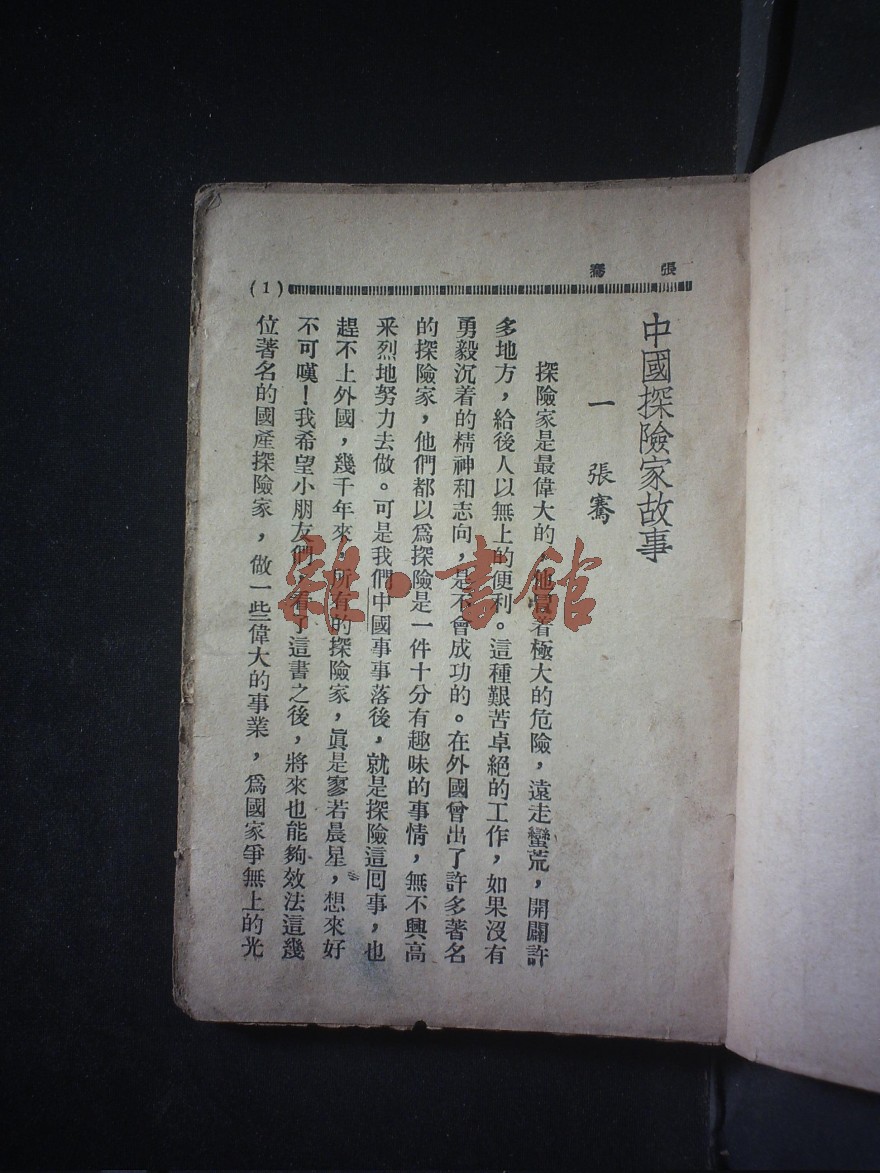 張騫
(1)
中國探險家故事
一 張騫
探險家是最偉大的,他冒着極大的危險,遠走蠻荒,開闢許
多地方,給後人以無上的便利。這種艱苦卓絕的工作,如果沒有
勇毅沉着的精神和志向,是不會成功的。在外國曾出了許多著名
的探險家,他們都以爲探險是一件十分有趣味的事情,無不興高
釆烈地努力去做。可是我們中國事事落後,就是探險這囘事,也
趕不上外國,幾千年來,所有的探險家,眞是寥若晨星,想來好
不可嘆!我希望小朋友們,看了這書之後,將來也能夠效法這幾
位著名的國產探險家,做一些偉大的事業,爲國家爭無上的光
雜·書館